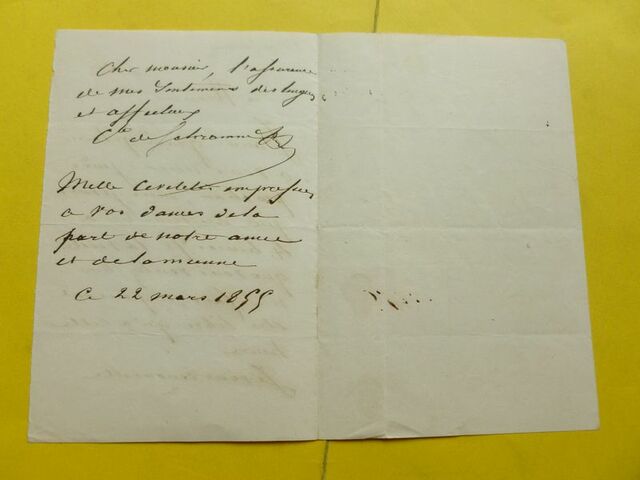 Cher monsieur, l'assurance
de mes sentimens distingués
et affectueux
Cte de Schramm
Mille civilités empressées
a vos dames de la
part de notre amie
et de la mienne
Ce 22 mars 1855